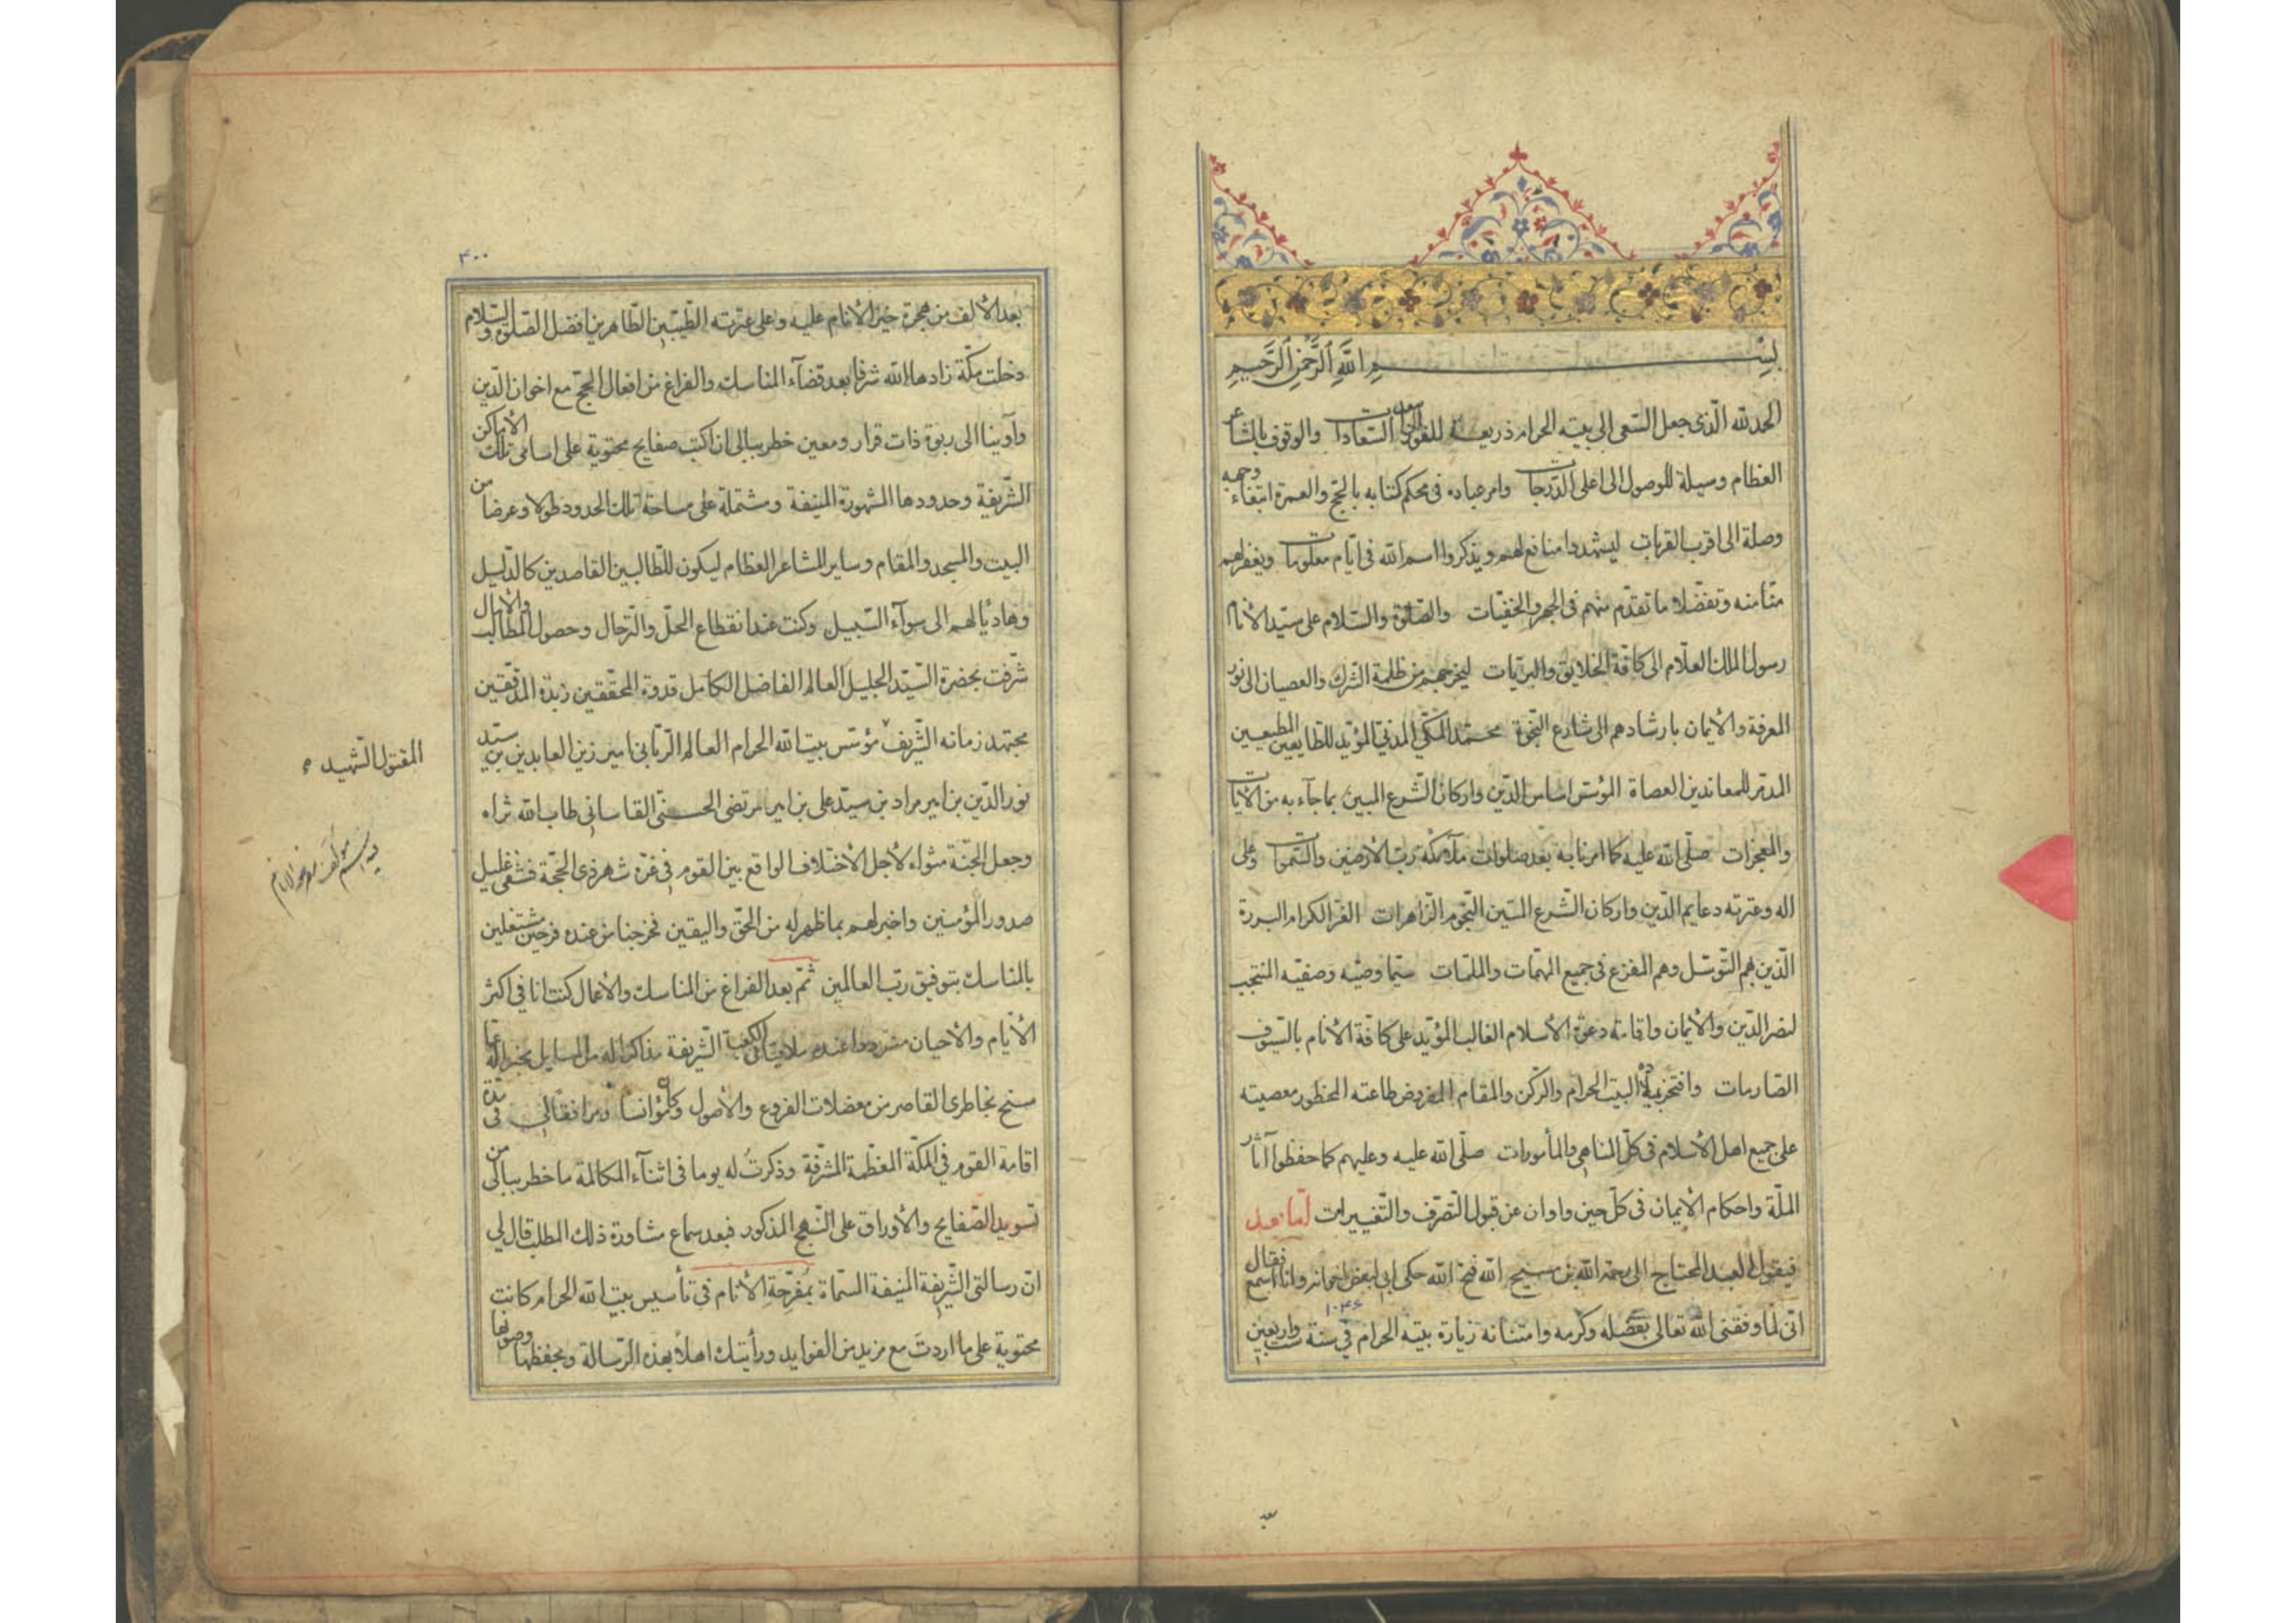 بِسْمِ اللّٰهِ الرَّحْمٰنِ الرَّحِيمِ
الحمد لله الّذى جعل السّعى الى بيته الحرام ذريعة للفوز السّعادات والوقوف بالمشاعر
العظام وسيلة للوصول الى اعلى الدّرجات وامر عباده فى محكم كتابه بالحجّ والعمرة ابتغاء وجهه
وصلة الى اقرب القربات ليشهدوا منافع لهم ويذكروا اسم الله فى ايّام معلومات ويغفر لهم
منّا منه وتفضّلا ما تقدّم منهم فى الجهر والخفيّات والصّلوة والسّلام على سيّد الأنام
رسول الملك العلّام الى كافّة الخلايق والبريّات ليخرجهم من ظلمة الشّرك والعصيان الى نور
المعرفة والأيمان بارشادهم الى شارع النّجوة محمّد المكّي المدني المؤيّد للطّايعين المطيعين
المدمّر للمعاندين العصاة المؤسّس اساس الدّين واركان الشّرع المبين بما جآء به من الآيات
والمعجزات صلّى الله عليه كما امرنا به بعد صلوات ملآئكة ربّ الأرضين والسّموات وعلى
اله وعترته دعايم الدّين واركان الشّرع المتين النّجوم الزّاهرات الغرّ الكرام البررة
الّذين بهم التّوسّل وهم المفزع فى جميع المهمّات والملمّات سيّما وصيّه وصفيّه المنتجب
لنصر الدّين والأيمان واقامة دعوة الأسلام الغالب المؤيّد على كافّة الأنام بالسّيوف
الصّارمات وافتخر البيت الحرام والرّكن والمقام المفروض طاعته المحظور معصيته
على جميع اهل الأسلام فى كلّ المناهي والمأمورات صلّى الله عليه وعليهم كما حفظوا آثار
الملّة واحكام الأيمان فى كلّ حين واوان عن قبول التّصرّف والتّغييرات امّا بعد
فيقول العبد المحتاج الى رحمة الله بن مسيح الله فتح الله حكى لى بعض وانا اسمع فقال
١٠٤٦
انّى لمّا وفّقنى الله تعالى بفضله وكرمه وامتنانه زيارة بيته الحرام فى سنة ستّ واربعين
بعد
٤٠٠
بعد الألف من هجرة خير الأنام عليه وعلى عترته الطّيّبين الطّاهرين افضل الصّلوة والسّلام
دخلت مكّة زادها الله شرفا بعد قضآء المناسك والفراغ من افعال الحجّ مع اخوان الدّين
وآوينا الى ربوة ذات قرار ومعين خطر ببالى ان اكتب صفايح محتوية على اسامى تلك الأماكن
الشّريفة وحدودها المشهورة المنيفة ومشتملة على مساحة تلك الحدود طولا وعرضا من
البيت والمسجد والمقام وساير المشاعر العظام ليكون للطّالبين القاصدين كالدّليل
وهاديًا لهم الى سوآء السّبيل وكنت عند انقطاع الحلّ والتّرحال وحصول المطالب والأمال
شرّفت بحضرة السّيّد الجليل العالم الفاضل الكامل قدوة المحقّقين زبدة المدقّقين
مجتهد زمانه الشّريف مؤسّس بيت الله الحرام العالم الرّبّاني امير زين العابدين بن سيّد
نور الدّين بن امير مراد بن سيّد على بن امير مرتضى الحسينى القاسانى طاب الله ثراه
المقتول الشّهيد
وجعل الجنّة مثواه لأجل الأختلاف الواقع بين القوم فى غرّة شهر ذى الحجّة فشفى غليل
صدور المؤمنين واخبر لهم بما ظهر له من الحقّ واليقين فخرجنا من عنده فرحين مشتغلين
بالمناسك بتوفيق ربّ العالمين ثمّ بعد الفراغ من المناسك والأعمال كنت انا فى اكثر
الأيّام والأحيان متردّدا عنده ملاقيا فى الكعبة الشّريفة مذاكرا له من المسايل مخبرا له عمّا
سنح بخاطرى القاصر من معضلات الفروع والأصول وكان مؤانسا ومرافقا لى فى مدّة
اقامة القوم فى المكّة المعظّمة المشرّفة وذكرتُ له يوما فى اثنآء المكالمة ما خطر ببالى من
تسويد الصّفايح والأوراق على النّهج المذكور فبعد سماع مشاورة ذلك المطلب قال لي
انّ رسالتى الشّريفة المنيفة المسمّاة بمُفَرّحةِ الأنام فى تأسيس بيت الله الحرام كانت
محتوية على ما اردتَ مع مزيد من الفوايد ورأيتك اهلاً بهذه الرّسالة وبحفظها وصونها